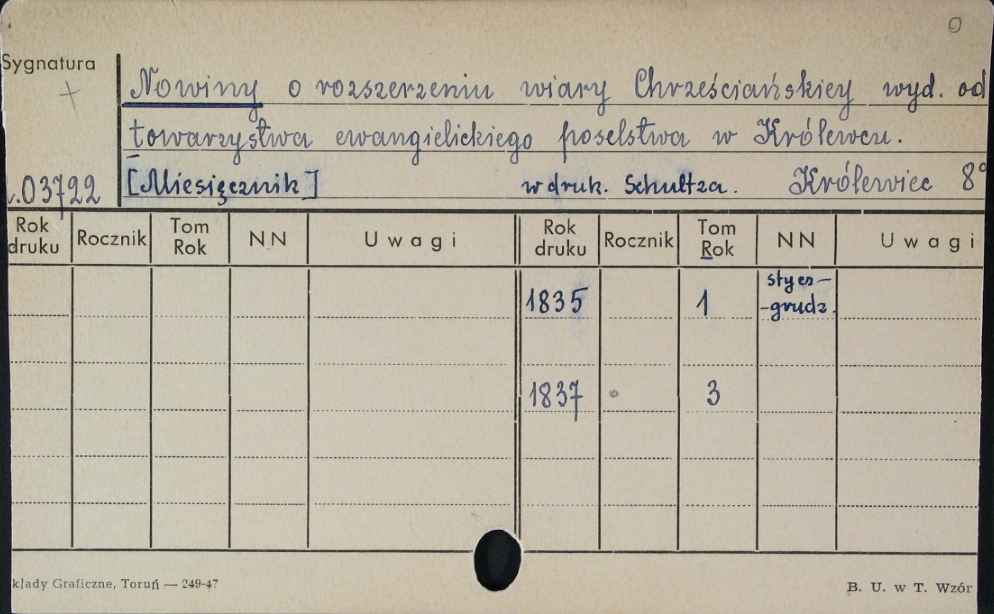 Sygnatura
+
Nowiny o rozszerzeniu wiary Chrześciańskiey wyd. od
towarzystwa ewangielickiego poselstwa w Królewcu.
.03722 [Miesięcznik] w druk. Schultza. Królewiec 8°
Rok druku Rocznik Tom Rok NN Uwagi Rok druku Rocznik Tom Rok NN Uwagi
1835 1 stycz-
-grudz.
1837 3
kłady Graficzne, Toruń — 249-47 B. U. w T. Wzór